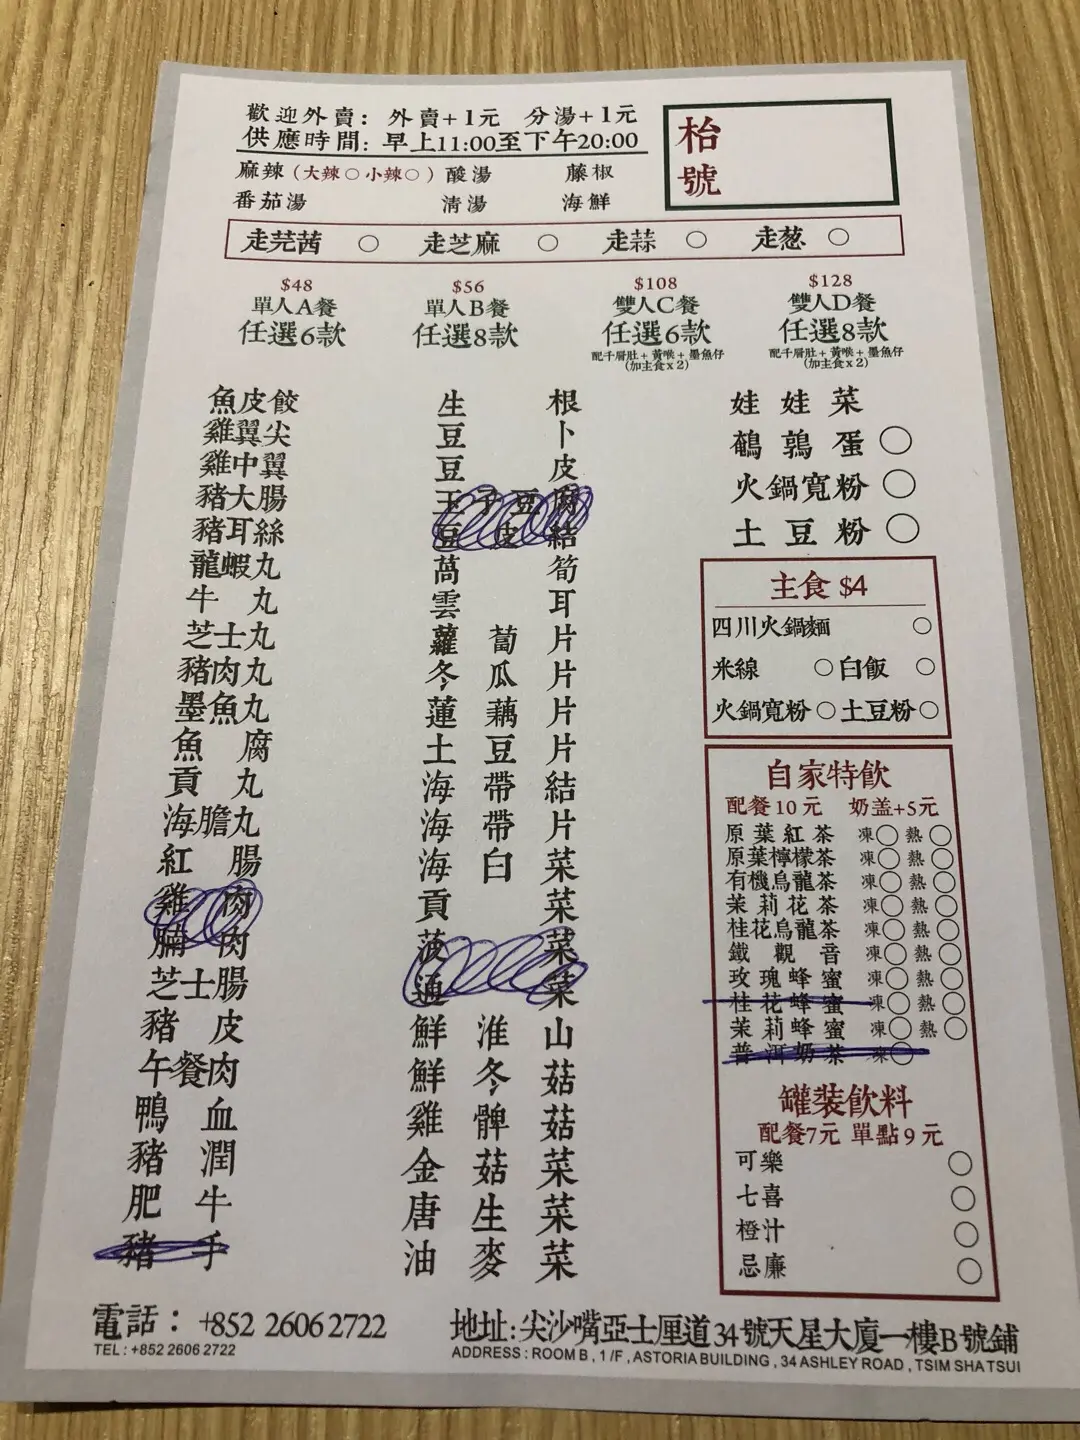 歡迎外賣：外賣+1元 分湯+1元
供應時間：早上11:00至下午20:00
枱號
麻辣（大辣○小辣○）酸湯 藤椒
番茄湯 清湯 海鮮
走芫茜 ○ 走芝麻 ○ 走蒜 ○ 走葱 ○
$48
單人A餐
任選6款
$56
單人B餐
任選8款
$108
雙人C餐
任選6款
配千層肚+黃喉+墨魚仔
(加主食x2)
$128
雙人D餐
任選8款
配千層肚+黃喉+墨魚仔
(加主食x2)
魚皮餃
雞翼尖
雞中翼
豬大腸
豬耳絲
龍蝦丸
牛丸
芝士丸
豬肉丸
墨魚丸
魚腐
貢丸
海膽丸
紅腸
雞肉
腩肉
芝士腸
豬皮
午餐肉
鴨血
豬潤
肥牛
豬手
生根
豆卜
豆皮
玉子豆腐
豆皮結
萵筍
雲耳
蘿蔔片
冬瓜片
蓮藕片
土豆片
海帶結
海帶片
海白菜
貢菜
菠菜
通菜
鮮淮山
鮮冬菇
雞髀菇
金菇菜
唐生菜
油麥菜
娃娃菜
鵪鶉蛋 ○
火鍋寬粉 ○
土豆粉 ○
主食 $4
四川火鍋麵 ○
米線 ○ 白飯 ○
火鍋寬粉 ○ 土豆粉 ○
自家特飲
配餐10元 奶盖+5元
原葉紅茶 凍○ 熱○
原葉檸檬茶 凍○ 熱○
有機烏龍茶 凍○ 熱○
茉莉花茶 凍○ 熱○
桂花烏龍茶 凍○ 熱○
鐵觀音 凍○ 熱○
玫瑰蜂蜜 凍○ 熱○
桂花蜂蜜 凍○ 熱○
茉莉蜂蜜 凍○ 熱○
普洱奶茶 凍○
罐裝飲料
配餐7元 單點9元
可樂 ○
七喜 ○
橙汁 ○
忌廉 ○
電話：+852 2606 2722
TEL : +852 2606 2722
地址:尖沙嘴亞士厘道34號天星大廈一樓B號鋪
ADDRESS : ROOM B , 1 /F , ASTORIA BUILDING , 34 ASHLEY ROAD , TSIM SHA TSUI